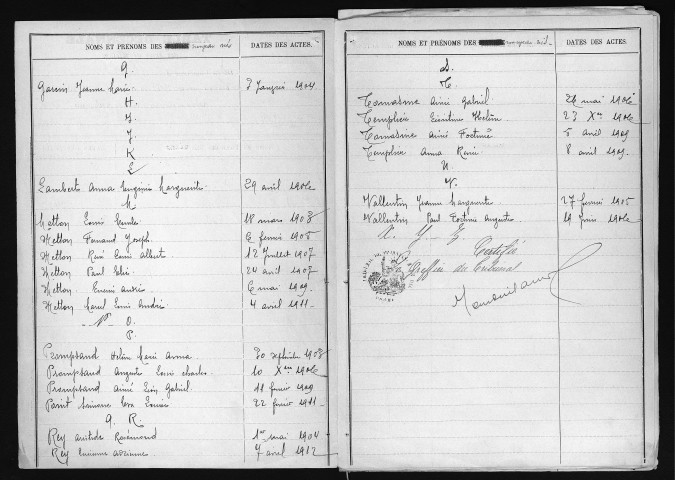 NOMS ET PRÉNOMS DES nouveaux nés DATES DES ACTES.
G
Garcin Jeanne Marie 7 Janvier 1904
H.
I.
J.
K
L
Lambert Anna Eugénie Marguerite 29 avril 1906
M
Metton Louis 18 mars 1903
Metton Fernand Joseph 6 février 1905
Metton René Louis Albert 12 Juillet 1907
Metton Paul Elie 24 avril 1907
Metton André 6 mai 1909
Metton Marcel Louis André 4 avril 1911
N O.
P.
Prompsaud Hélène Marie Anna 30 septembre 1903
Prompsaud Auguste Louis Charles 10 Xbre 1906
Prompsaud Aimé Léon Gabriel 11 février 1909
22 février 1911
Q. R.
Rey Aristide Raimond 1er mai 1904
Rey Lucienne 7 avril 1912
NOMS ET PRÉNOMS DES nés DATES DES ACTES.
S.
T.
Tamasme Aimé Gabriel 26 mai 1906
Templier Hélène 23 Xbre 1906
Tamasme Aimé Fortuné 5 avril 1909
Templier Anna René 8 avril 1909
U
V.
Vallentin Yvonne Marguerite 27 février 1905
Vallentin Paul Fortuné Auguste 19 1906
X. Y. Z.
Certifié
Greffier du Tribunal